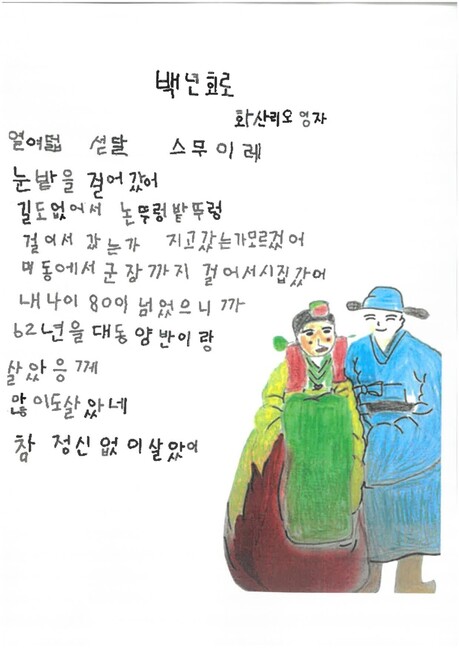 백년회로
화산리오영자
열여덟 섣달 스무이레
눈밭을 걸어갔어
길도없어서 논뚜렁밭뚜렁
걸어서 갔는가 지고갔는가모르겠어
동에서 군장까지 걸어서시집갔어
내나이 80이 넘었으니까
62년을 대동양반이랑
살았응께
많이도살았네
참 정신없이살았어